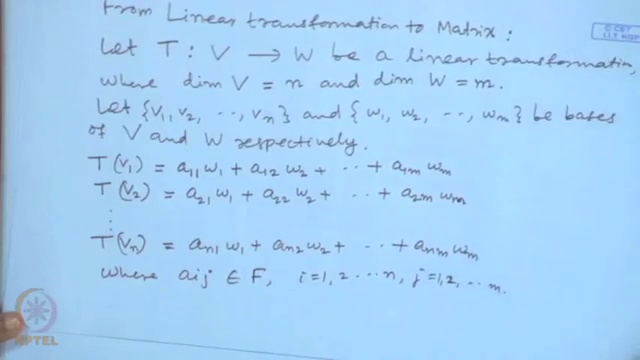 From Linear transformation to Matrix:
© CET
I.I.T. KGP
Let T : V → W be a linear transformation,
where dim V = n and dim W = m.
Let {v₁, v₂, ··, vₙ} and {w₁, w₂, ··, wₘ} be bases
of V and W respectively.
T(v₁) = a₁₁w₁ + a₁₂w₂ + ·· + a₁ₘwₘ
T(v₂) = a₂₁w₁ + a₂₂w₂ + ·· + a₂ₘwₘ
⋮
T(vₙ) = aₙ₁w₁ + aₙ₂w₂ + ·· + aₙₘwₘ
where aᵢⱼ ∈ F, i=1,2 ··· n, j=1,2, ·· m.
NPTEL